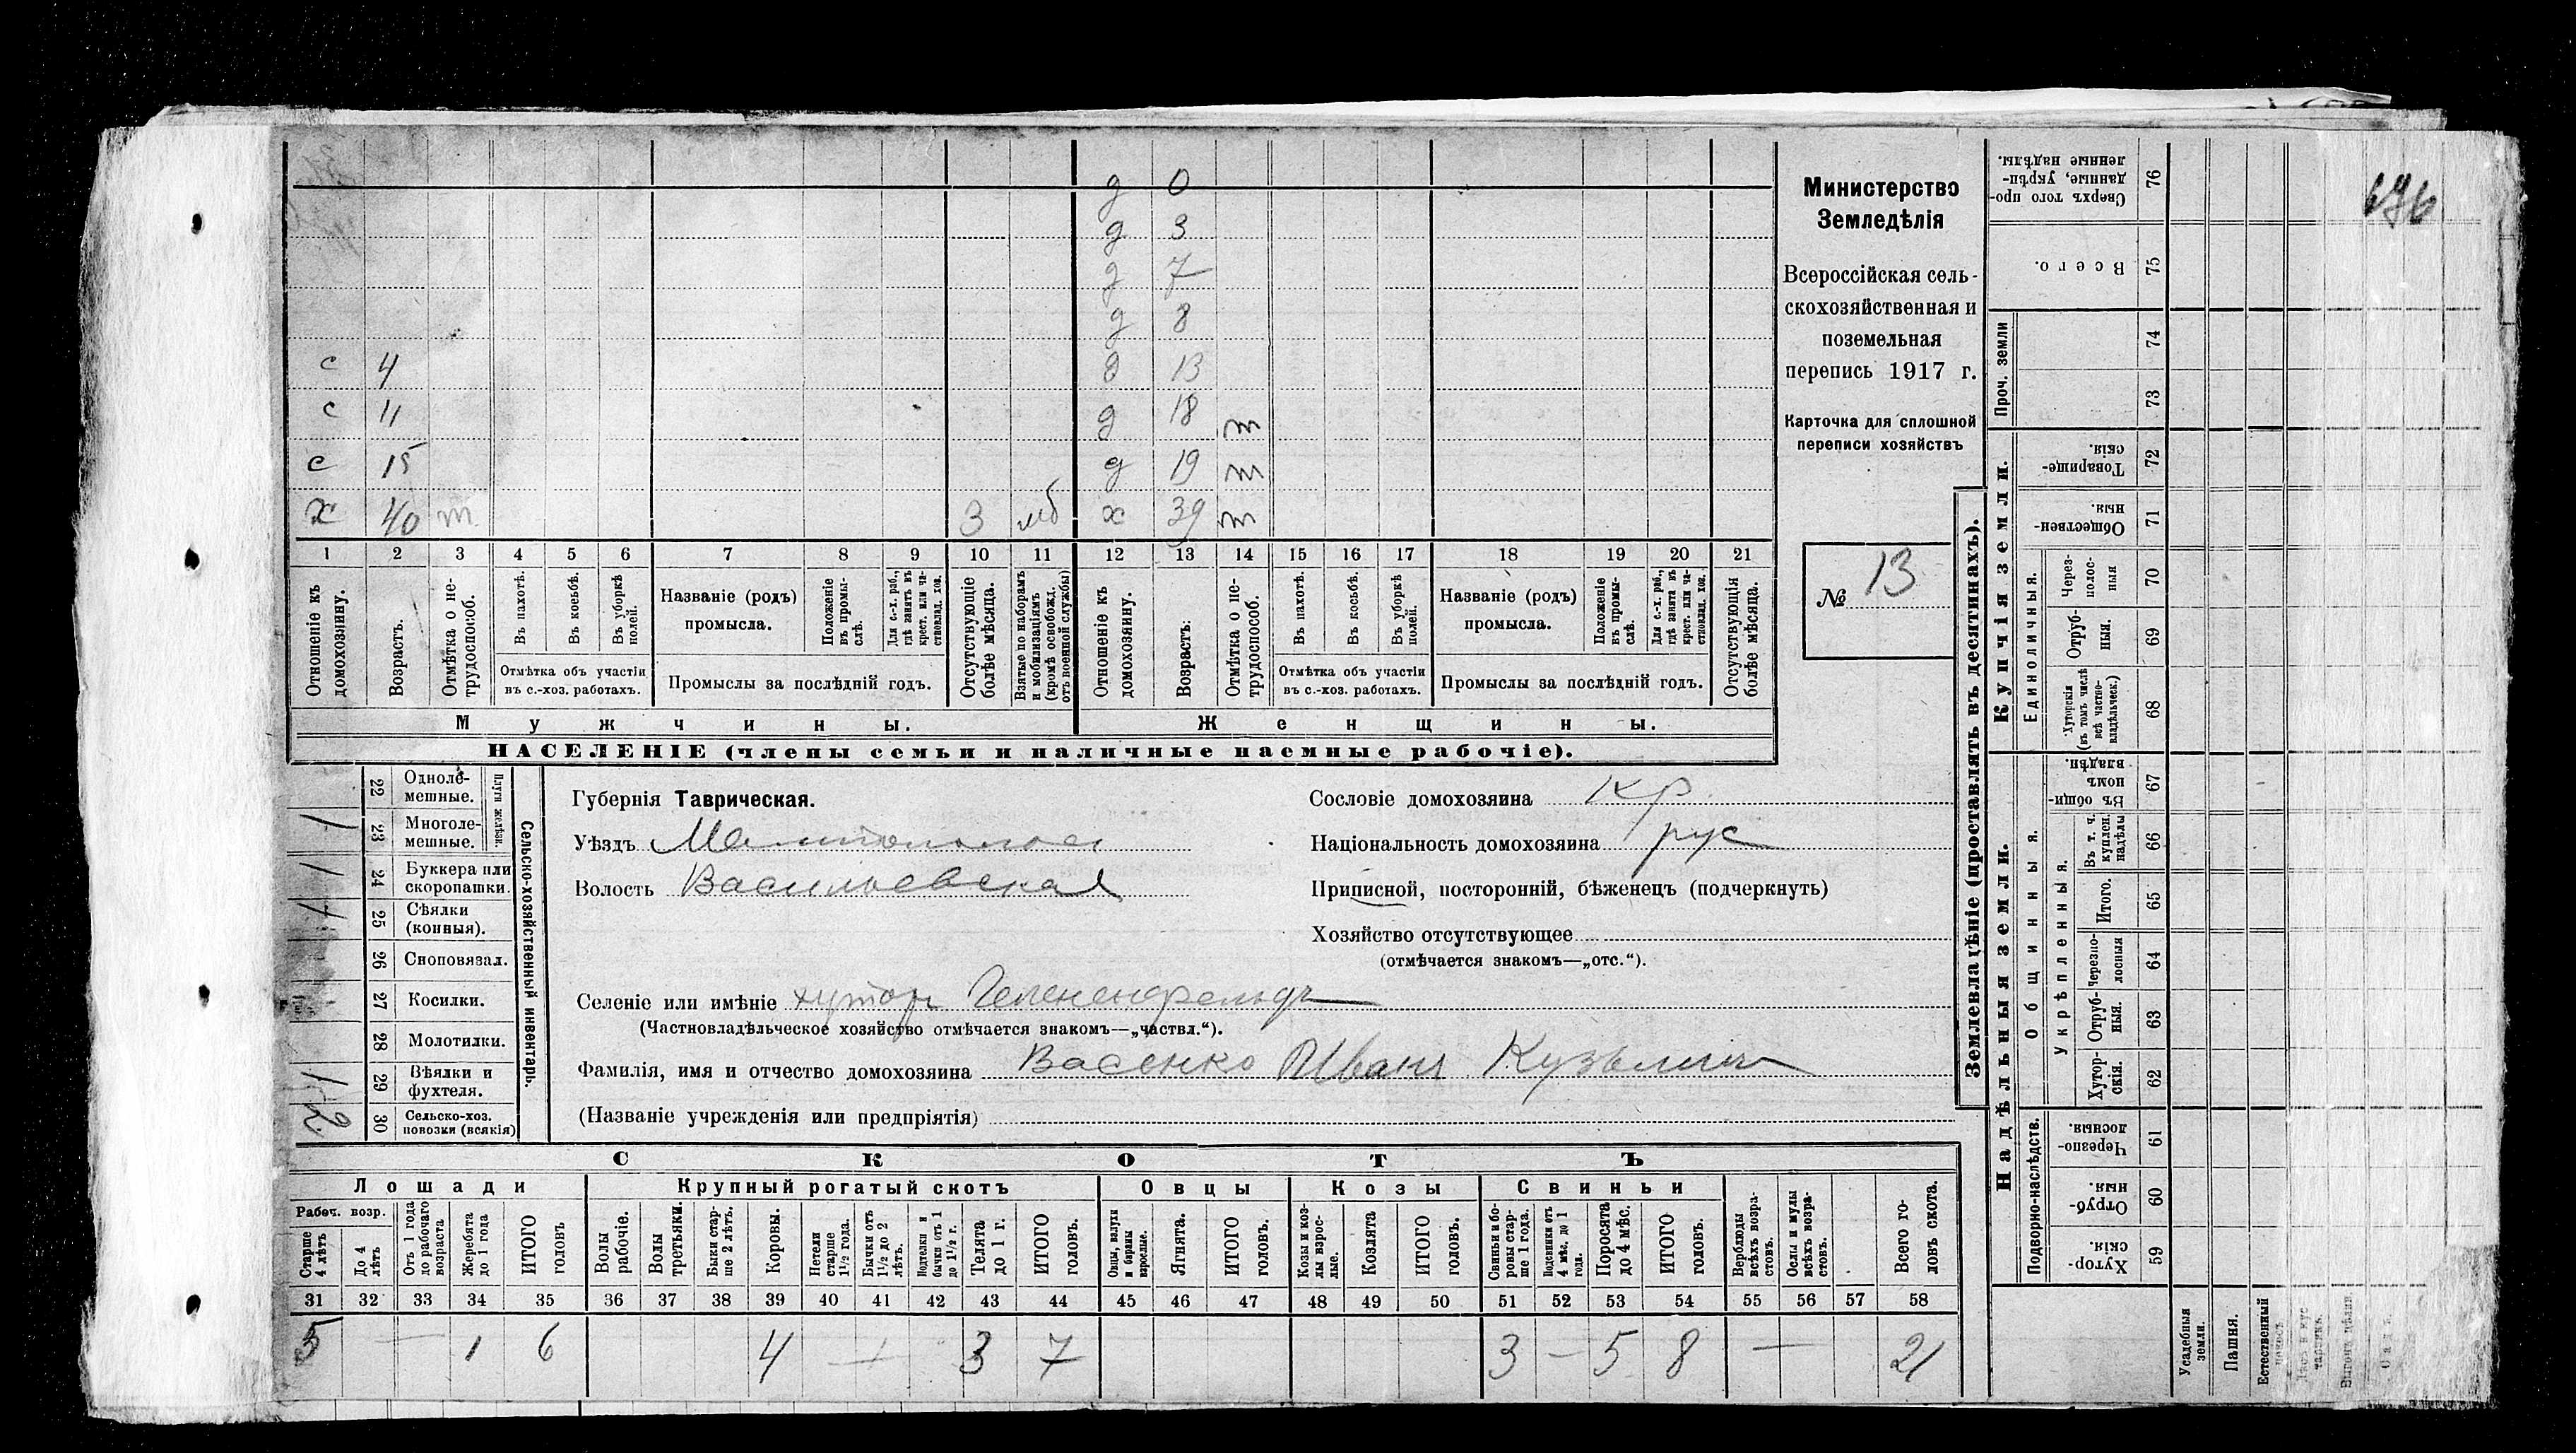 696
д 0
д 3
д 7
д 8
с 4 д 13
с 11 д 18 т
с 15 д 19 т
х 40 т 3 мб х 39 т
1 2 3 4 5 6 7 8 9 10 11 12 13 14 15 16 17 18 19 20 21
Отношеніе къ домохозяину.
Возрастъ.
Отмѣтка о нетрудоспособ.
Въ пахотѣ.
Въ косьбѣ.
Въ уборкѣ полей.
Отмѣтка объ участіи въ с.-хоз. работахъ.
Названіе (родъ) промысла.
Положеніе въ промыслѣ.
Для с.-х. раб., гдѣ занятъ въ крест. или частновлад. хоз.
Промыслы за послѣдній годъ.
Отсутствующіе болѣе мѣсяца.
Взятые по наборамъ и мобилизаціямъ (кромѣ освобожд. отъ военной службы)
Отношеніе къ домохозяину.
Возрастъ.
Отмѣтка о нетрудоспособ.
Въ пахотѣ.
Въ косьбѣ.
Въ уборкѣ полей.
Отмѣтка объ участіи въ с.-хоз. работахъ.
Названіе (родъ) промысла.
Положеніе въ промыслѣ.
Для с.-х. раб., гдѣ занята въ крест. или частновлад. хоз.
Промыслы за послѣдній годъ.
Отсутствующія болѣе мѣсяца.
Мужчины. Женщины.
НАСЕЛЕНІЕ (члены семьи и наличные наемные рабочіе).
Министерство
Земледѣлія
Всероссійская сель-
скохозяйственная и
поземельная
перепись 1917 г.
Карточка для сплошной
переписи хозяйствъ
№ 13
Сельско-хозяйственный инвентарь.
Плуги желѣзн.
22 Одноле-мешные.
1 23 Многоле-мешные.
1 24 Буккера или скоропашки.
1 25 Сѣялки (конныя).
26 Сноповязал.
27 Косилки.
28 Молотилки.
1 29 Вѣялки и фухтеля.
2 30 Сельско-хоз. повозки (всякія)
Губернія Таврическая.
Уѣздъ Мелитопольскій
Волость Васильевская
Сословіе домохозяина кр
Національность домохозяина рус
Приписной, посторонній, бѣженецъ (подчеркнуть)
Хозяйство отсутствующее
(отмѣчается знакомъ—„отс.“).
Селеніе или имѣніе хуторъ Гелененфельдъ
(Частновладѣльческое хозяйство отмѣчается знакомъ—„частвл.“).
Фамилія, имя и отчество домохозяина Васенко Иванъ Кузьмич
(Названіе учрежденія или предпріятія)
СКОТЪ
Лошади Крупный рогатый скотъ Овцы Козы Свиньи
Рабоч. возр.
Старше 4 лѣтъ
До 4 лѣтъ
Отъ 1 года до рабочаго возраста
Жеребята до 1 года
ИТОГО головъ
Волы рабочіе.
Волы третьяки.
Быки старше 2 лѣтъ.
Коровы.
Нетели старше 1½ года.
Бычки отъ 1½ до 2 лѣтъ.
Подтелки и бычки отъ 1 до 1½ г.
Телята до 1 г.
ИТОГО головъ.
Овцы, валухи и бараны взрослые.
Ягнята.
ИТОГО головъ.
Козы и козлы взрослые.
Козлята
ИТОГО головъ.
Свиньи и боровы старше 1 года.
Подсвинки отъ 4 мѣс. до 1 года.
Поросята до 4 мѣс.
ИТОГО головъ.
Верблюды всѣхъ возрастовъ.
Ослы и мулы всѣхъ возрастовъ.
Всего головъ скота.
31 32 33 34 35 36 37 38 39 40 41 42 43 44 45 46 47 48 49 50 51 52 53 54 55 56 57 58
5 — 1 6 4 — 3 7 3 — 5 8 — 21
Землевладѣніе (проставлять въ десятинахъ).
Купчія земли.
Надѣльныя земли.
Сверхъ того проданные, укрѣпленные надѣлы. 76
Всего. 75
Проч. земли 74
73
Товарищескія. 72
Общественныя. 71
Единоличныя.
Черезполосныя 70
Отрубныя. 69
Хуторскія (въ томъ числѣ всѣ частновладѣльческ.) 68
Общинныя.
Въ общинномъ владѣн. 67
Укрѣпленныя.
Въ т. ч. куплен. надѣлы 66
Итого. 65
Черезполосныя 64
Отрубныя. 63
Хуторскія. 62
Подворно-наслѣдств.
Черезполосныя. 61
Отрубныя. 60
Хуторскія. 59
Усадебныя земли.
Пашня.
Естественный